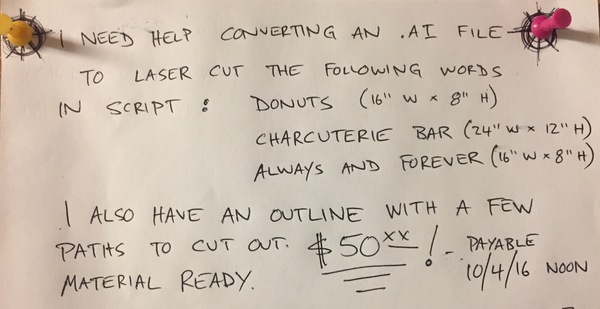 I NEED HELP CONVERTING AN .AI FILE
TO LASER CUT THE FOLLOWING WORDS
IN SCRIPT : DONUTS (16" W x 8" H)
CHARCUTERIE BAR (24" W x 12" H)
ALWAYS AND FOREVER (16" W x 8" H)
I ALSO HAVE AN OUTLINE WITH A FEW
PATHS TO CUT OUT. $50xx ! - PAYABLE
MATERIAL READY. 10/4/16 NOON